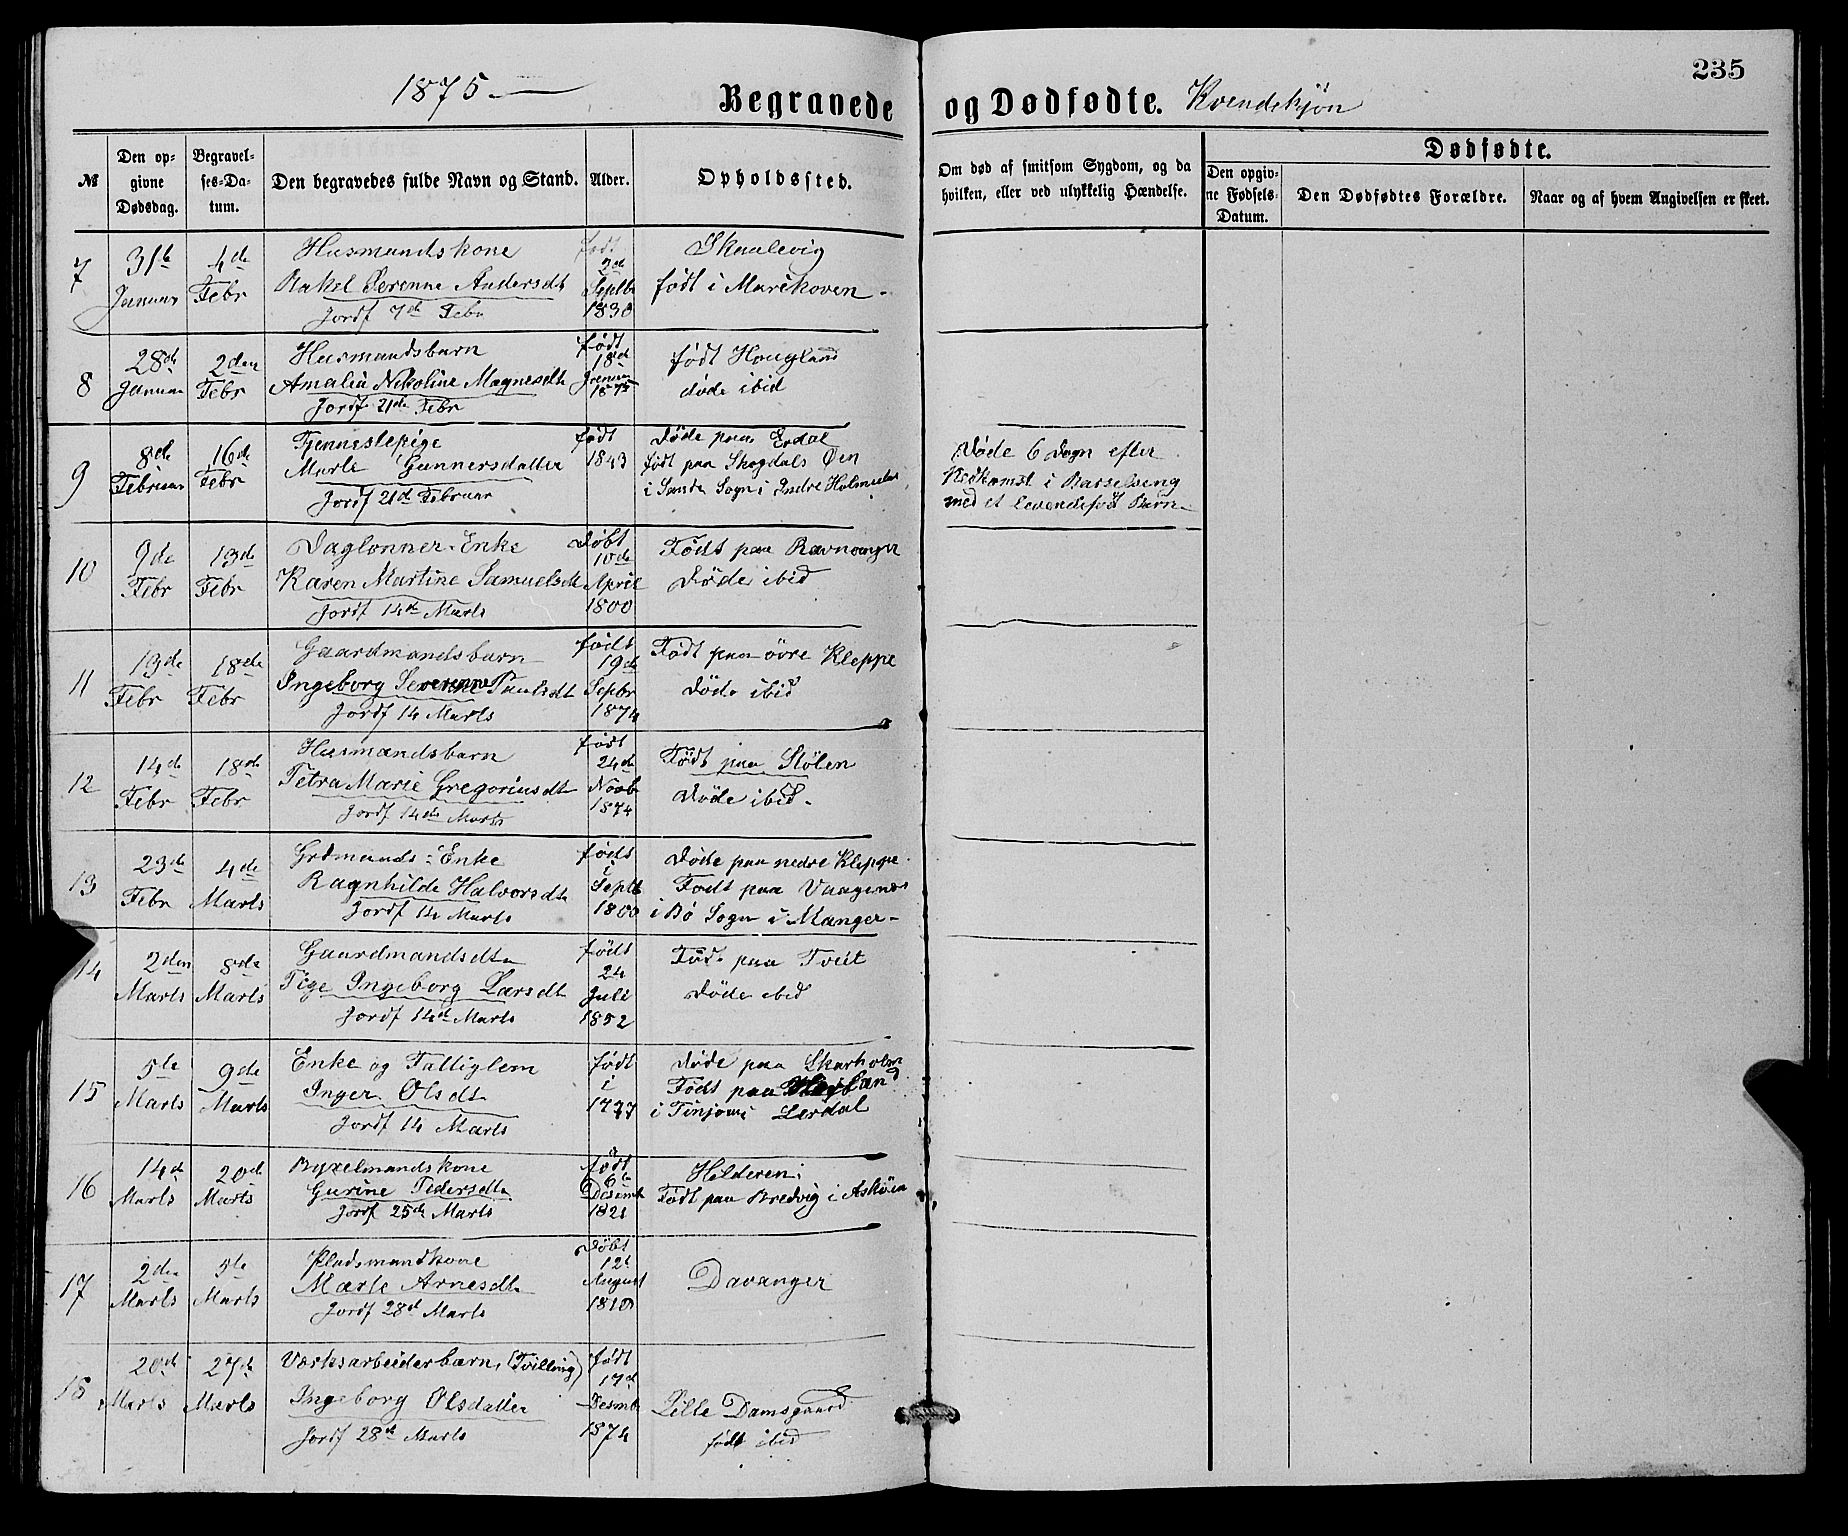 235
1875
Begravede og Dødfødte. Kvendekjøn
№
Den opgivne Dødsdag.
Begravelses-Datum.
Den begravedes fulde Navn og Stand.
Alder.
Opholdssted.
Om død af smitsom Sygdom, og da hvilken, eller ved ulykkelig Hændelse.
Dødfødte.
Den opgivne Fødsels-Datum.
Den Dødfødtes Forældre.
Naar og af hvem Angivelsen er skeet.
7
31te Januar
4de Febr
Husmandskone
Rakel Serenne Andersdt
Jordf 7de Febr
født 2de Septbr 1830
Skaalevig
født i Marikoven
8
28de Januar
2den Febr
Husmandsbarn
Amalia Nikoline Magnesdt
Jordf 21de Febr
født 18de Januar 1875
født Hougland
døde ibid
9
8de Februar
16de Febr
Tjenestepige
Marte Gunnersdatter
Jordf 21de Februar
født 1843
Døde paa Erdal
født paa Skogdals Øen
i Sande Sogn i Indre Holmedal
Døde 6 Dagn efter
Nedkomst i Barselseng
med et levendefødt Barn
10
9de Febr
13de Febr
Daglønner-Enke
Karen Martine Samuelsdt
Jordf 14de Marts
Døbt 10de April 1800
Født paa Ravnanger
Døde ibid
11
13de Febr
18de Febr
Gaardmandsbarn
Ingeborg Serenne Paulsdt
Jordf 14 Marts
født 19de Sepbr 1874
Født paa øvre Kleppe
Døde ibid
12
14de Febr
18de Febr
Husmandsbarn
Petra Marie Gregoriusdt
Jordf 14de Marts
født 24de Novb 1874
Født paa Stølen
Døde ibid.
13
23de Febr
4de Marts
Grdmands-Enke
Ragnhilde Halvorsdt
Jordf 14 Marts
født i Septb 1800
Døde paa nedre Kleppe
Født paa Vaagenes
i Bø Sogn i Manger
14
2den Marts
8de Marts
Gaardmandsdt
Pige Ingeborg Larsdt
Jordf 14de Marts
født 24 Juli 1852
Født paa Tveit
Døde ibid
15
5te Marts
9de Marts
Enke og Fattiglem
Inger Olsdt
Jordf 14 Marts
født i 1777
Døde paa Skarholmen
Født paa
i Lerdal
16
14d Marts
20de Marts
Byxelmandskone
Gurine Pedersdt
Jordf 25de Marts
født 6te Desemb 1821
Helderen
Født paa Bredvig i Askøen
17
2den Marts
5te Marts
Pladsmandkone
Marte Arnesdt
Jordf 28d Marts
Døbt 12t August 1810
Davanger
18
20de Marts
27de Marts
Værksarbeiderbarn, (Tvilling)
Ingeborg Olsdatter
Jordf 28de Marts
født 17de Desmb 1874
Lille Damsgaard
født ibid